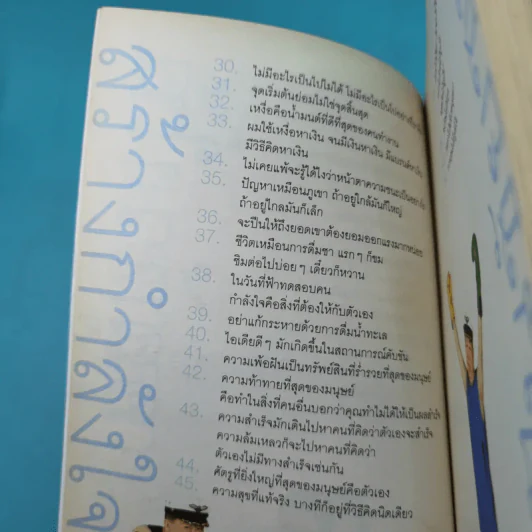 สร้างกำลังใจ
30. ไม่มีอะไรเป็นไปไม่ได้ ไม่มีอะไรเป็นไป
31. จุดเริ่มต้นย่อมไม่ใช่จุดสิ้นสุด
32. เหงื่อคือน้ำมนต์ที่ดีที่สุดของคนทำงาน
33. ผมใช้เหงื่อหาเงิน จนมีเงินหาเงิน
มีวิธีคิดหาเงิน
34. ไม่เคยแพ้จะรู้ได้ไงว่าหน้าตาความชนะเป็น
35. ปัญหาเหมือนภูเขา ถ้าอยู่ใกล้มันก็ใหญ่
ถ้าอยู่ไกลมันก็เล็ก
36. จะปีนให้ถึงยอดเขาต้องยอมออกแรงมาก
37. ชีวิตเหมือนการดื่มชา แรก ๆ ก็ขม
ชิมต่อไปบ่อย ๆ เดี๋ยวก็หวาน
38. ในวันที่ฟ้าทดสอบคน
กำลังใจคือสิ่งที่ต้องให้กับตัวเอง
39. อย่าแก้กระหายด้วยการดื่มน้ำทะเล
40. ไอเดียดี ๆ มักเกิดขึ้นในสถานการณ์คับขัน
41. ความเพ้อฝันเป็นทรัพย์สินที่ร่ำรวยที่สุดของมนุษย์
42. ความท้าทายที่สุดของมนุษย์
คือทำในสิ่งที่คนอื่นบอกว่าคุณทำไม่ได้ให้เป็นผลสำเร็จ
43. ความสำเร็จมักเดินไปหาคนที่คิดว่าตัวเองจะสำเร็จ
ความล้มเหลวก็จะไปหาคนที่คิดว่า
ตัวเองไม่มีทางสำเร็จเช่นกัน
44. ศัตรูที่ยิ่งใหญ่ที่สุดของมนุษย์คือตัวเอง
45. ความสุขที่แท้จริง บางทีก็อยู่ที่วิธีคิดนิดเดียว